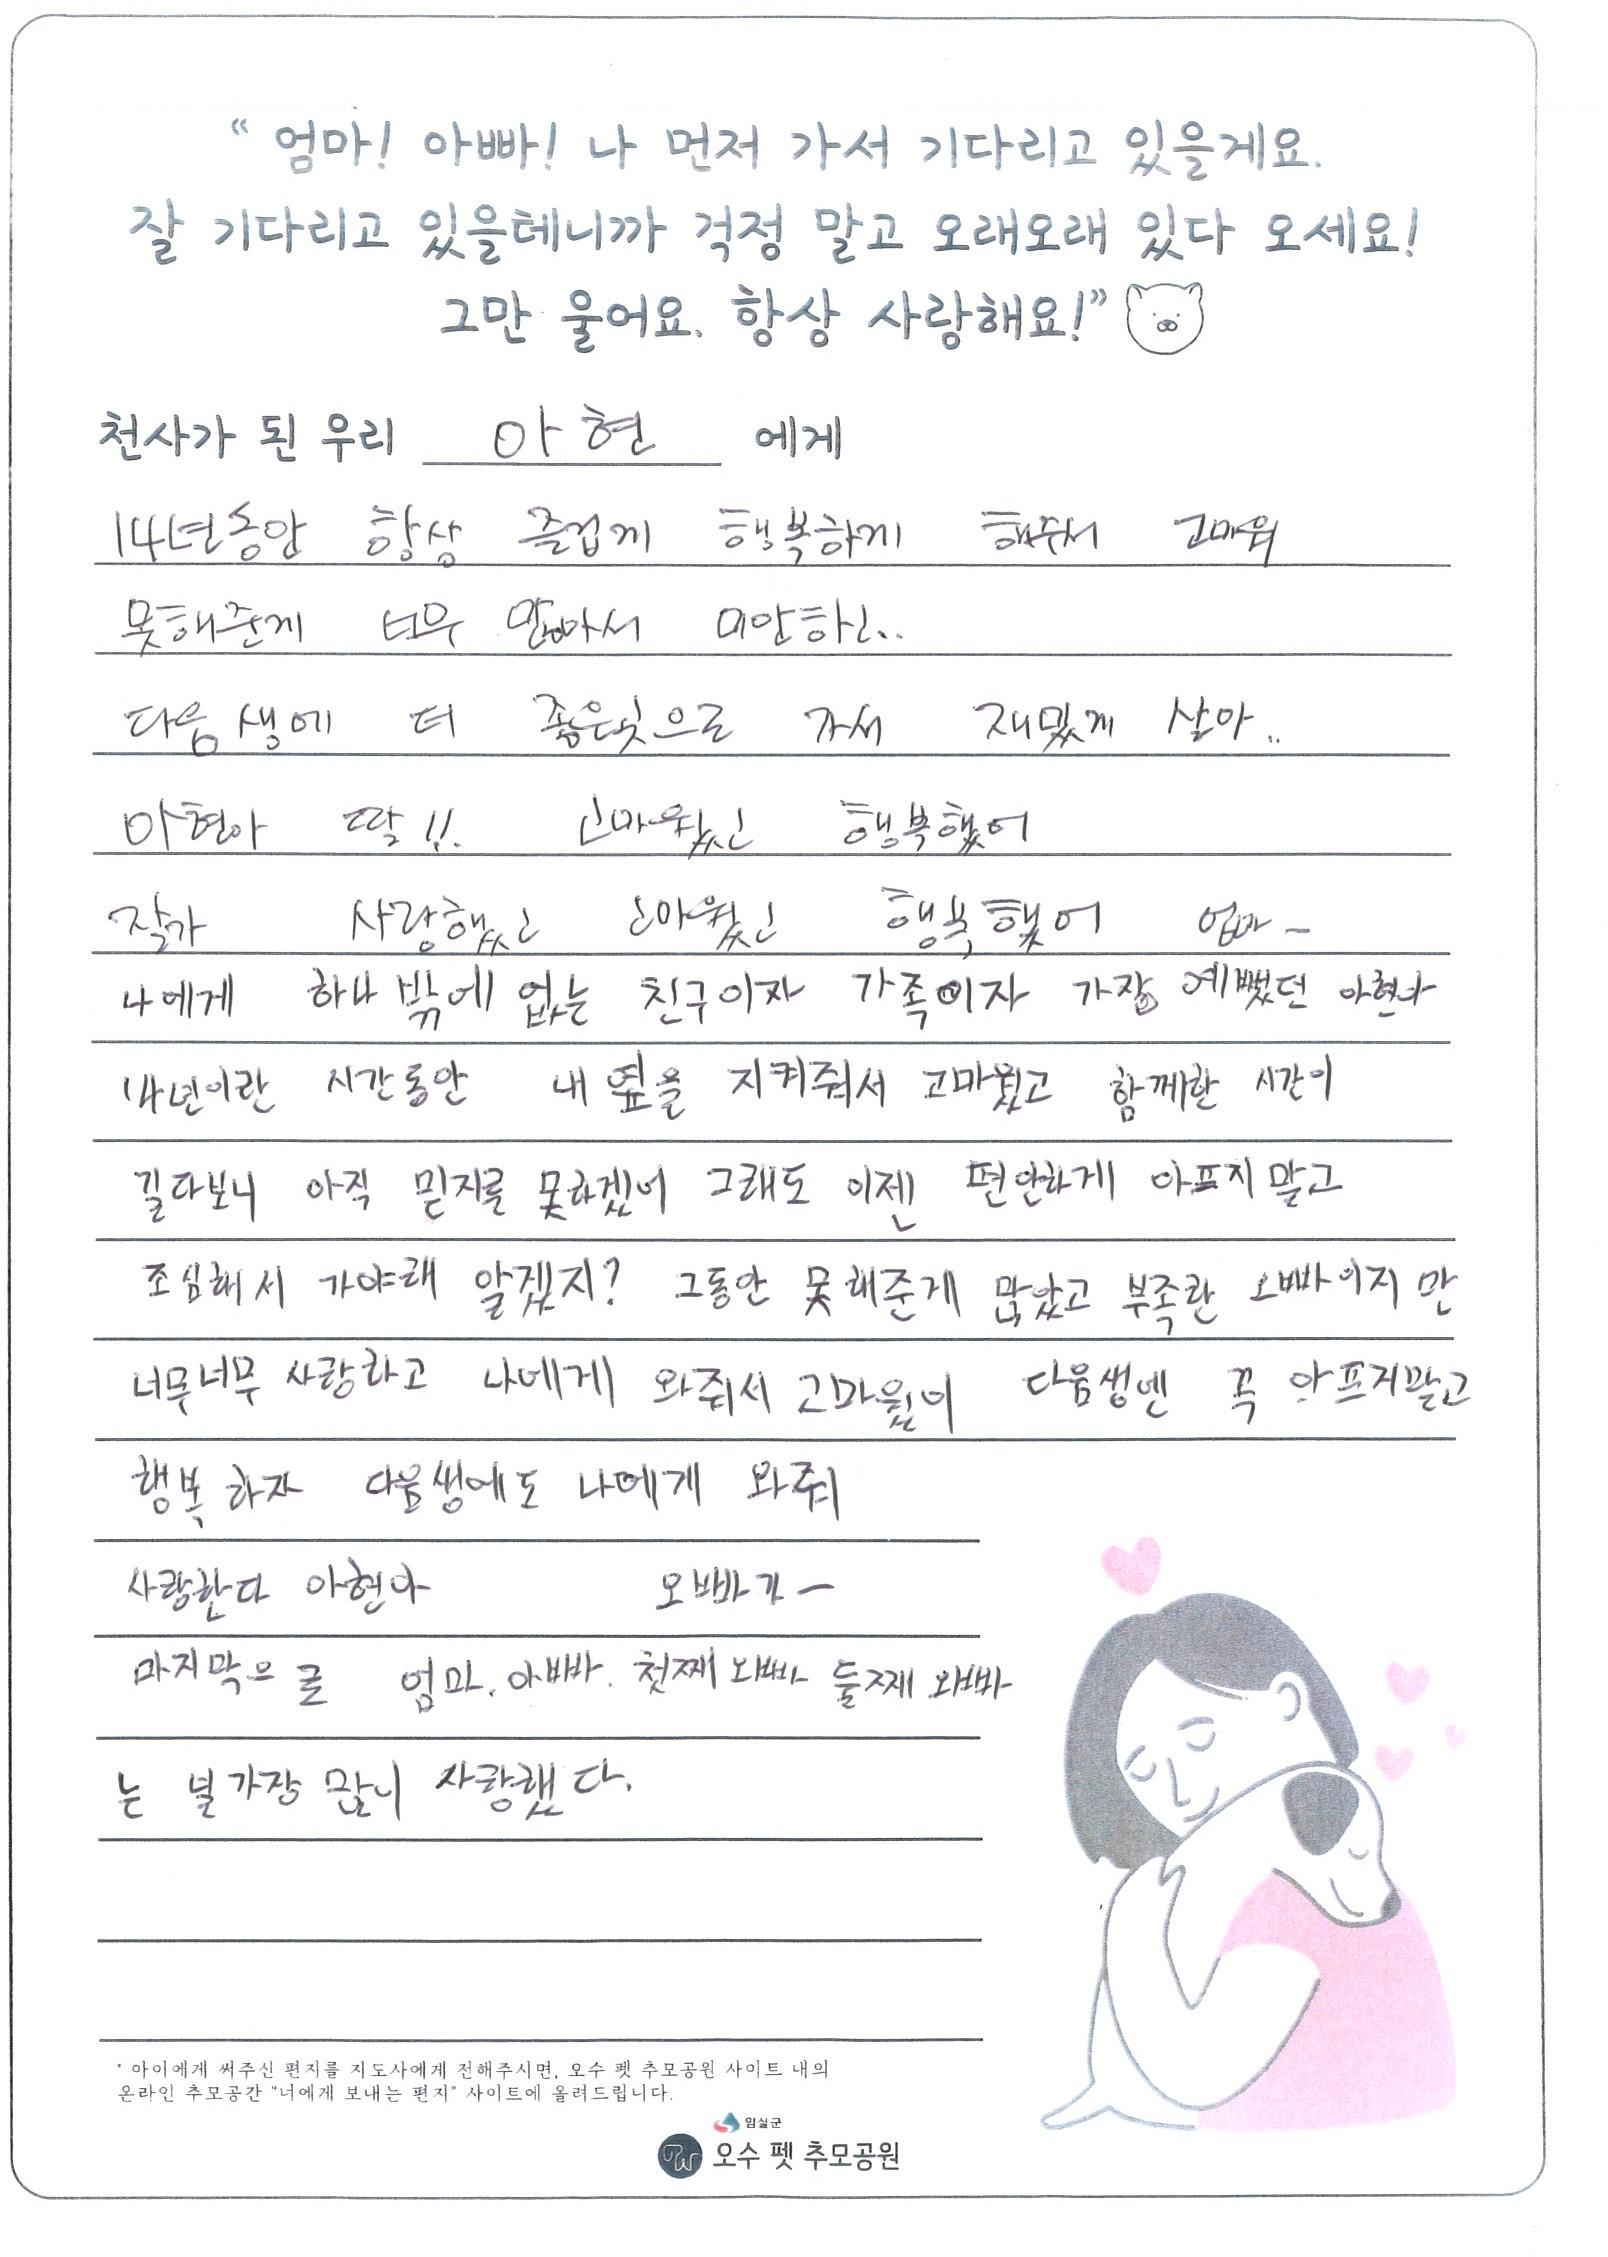 “ 엄마! 아빠! 나 먼저 가서 기다리고 있을게요.
잘 기다리고 있을테니까 걱정 말고 오래오래 있다 오세요!
그만 울어요. 항상 사랑해요!”
천사가 된 우리 아현 에게
14년동안 항상 즐겁게 행복하게 해주서 고마워
못해준게 너무 많아서 미안하고..
다음 생에 더 좋은곳으로 가서 재밌게 살아..
아현아 딸!!. 고마웠고 행복했어
잘가 사랑했고 고마웠고 행복했어 엄마 -
나에게 하나 밖에 없는 친구이자 가족이자 가장 예뻤던 아현아
14년이란 시간동안 내 옆을 지켜줘서 고마웠고 함께한 시간이
길다보니 아직 믿지를 못하겠어 그래도 이젠 편안하게 아프지 말고
조심해서 가야해 알겠지? 그동안 못해준게 많았고 부족한 오빠이지만
너무너무 사랑하고 나에게 와줘서 고마웠어 다음생엔 꼭 아프지말고
행복하자 다음생에도 나에게 와줘
사랑한다 아현아 오빠가 -
마지막으로 엄마. 아빠. 첫째 오빠 둘째 오빠
는 널 가장 많이 사랑했다.
* 아이에게 써주신 편지를 지도사에게 전해주시면, 오수 펫 추모공원 사이트 내의
온라인 추모공간 “너에게 보내는 편지” 사이트에 올려드립니다.
임실군
오수 펫 추모공원